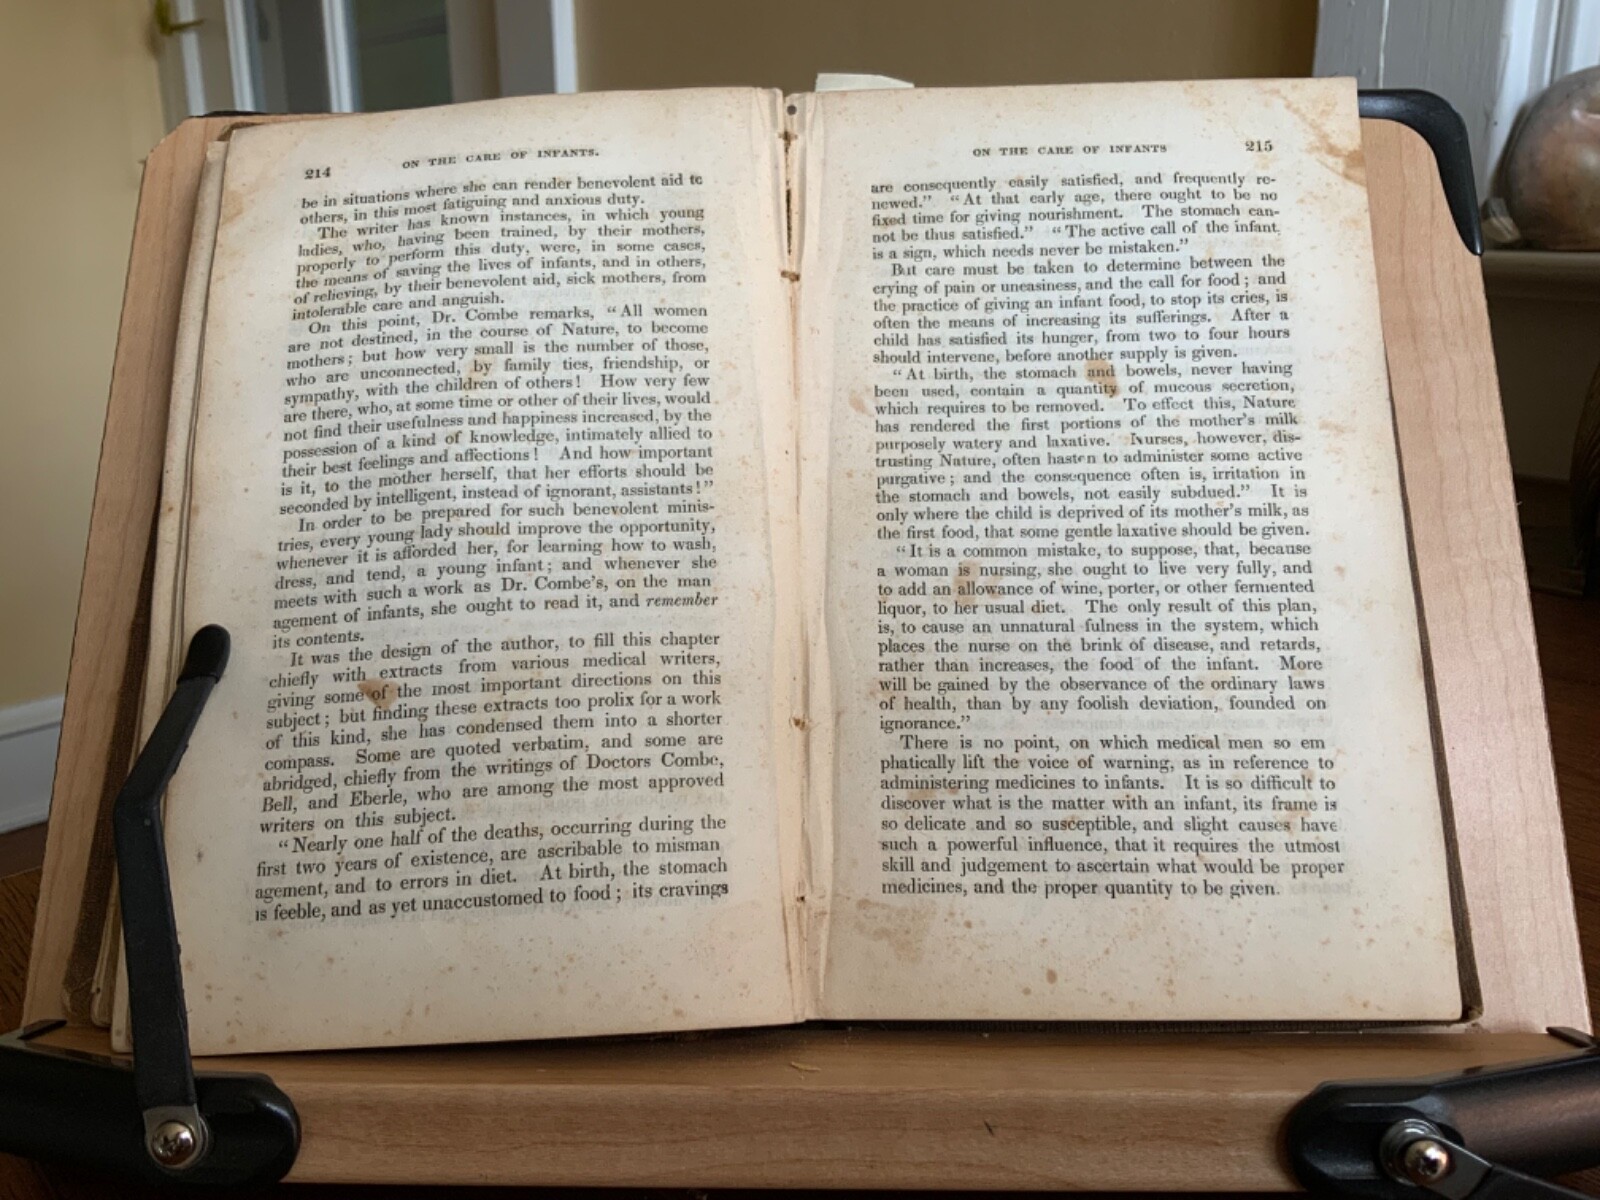 214
ON THE CARE OF INFANTS.
be in situations where she can render benevolent aid to
others, in this most fatiguing and anxious duty.
The writer has known instances, in which young
ladies, who, having been trained, by their mothers,
properly to perform this duty, were, in some cases,
the means of saving the lives of infants, and in others,
of relieving, by their benevolent aid, sick mothers, from
intolerable care and anguish.
On this point, Dr. Combe remarks, “All women
are not destined, in the course of Nature, to become
mothers; but how very small is the number of those,
who are unconnected, by family ties, friendship, or
sympathy, with the children of others! How very few
are there, who, at some time or other of their lives, would
not find their usefulness and happiness increased, by the
possession of a kind of knowledge, intimately allied to
their best feelings and affections! And how important
is it, to the mother herself, that her efforts should be
seconded by intelligent, instead of ignorant, assistants!”
In order to be prepared for such benevolent minis-
tries, every young lady should improve the opportunity,
whenever it is afforded her, for learning how to wash,
dress, and tend, a young infant; and whenever she
meets with such a work as Dr. Combe's, on the man
agement of infants, she ought to read it, and remember
its contents.
It was the design of the author, to fill this chapter
chiefly with extracts from various medical writers,
giving some of the most important directions on this
subject; but finding these extracts too prolix for a work
of this kind, she has condensed them into a shorter
compass. Some are quoted verbatim, and some are
abridged, chiefly from the writings of Doctors Combe,
Bell, and Eberle, who are among the most approved
writers on this subject.
“Nearly one half of the deaths, occurring during the
first two years of existence, are ascribable to misman
agement, and to errors in diet. At birth, the stomach
is feeble, and as yet unaccustomed to food; its cravings
ON THE CARE OF INFANTS
215
are consequently easily satisfied, and frequently re-
newed.” “At that early age, there ought to be no
fixed time for giving nourishment. The stomach can-
not be thus satisfied.” “The active call of the infant,
is a sign, which needs never be mistaken.”
But care must be taken to determine between the
crying of pain or uneasiness, and the call for food; and
the practice of giving an infant food, to stop its cries, is
often the means of increasing its sufferings. After a
child has satisfied its hunger, from two to four hours
should intervene, before another supply is given.
“At birth, the stomach and bowels, never having
been used, contain a quantity of mucous secretion,
which requires to be removed. To effect this, Nature
has rendered the first portions of the mother's milk
purposely watery and laxative. Nurses, however, dis-
trusting Nature, often hasten to administer some active
purgative; and the consequence often is, irritation in
the stomach and bowels, not easily subdued.” It is
only where the child is deprived of its mother's milk, as
the first food, that some gentle laxative should be given.
“It is a common mistake, to suppose, that, because
a woman is nursing, she ought to live very fully, and
to add an allowance of wine, porter, or other fermented
liquor, to her usual diet. The only result of this plan,
is, to cause an unnatural fulness in the system, which
places the nurse on the brink of disease, and retards,
rather than increases, the food of the infant. More
will be gained by the observance of the ordinary laws
of health, than by any foolish deviation, founded on
ignorance.”
There is no point, on which medical men so em
phatically lift the voice of warning, as in reference to
administering medicines to infants. It is so difficult to
discover what is the matter with an infant, its frame is
so delicate and so susceptible, and slight causes have
such a powerful influence, that it requires the utmost
skill and judgement to ascertain what would be proper
medicines, and the proper quantity to be given.